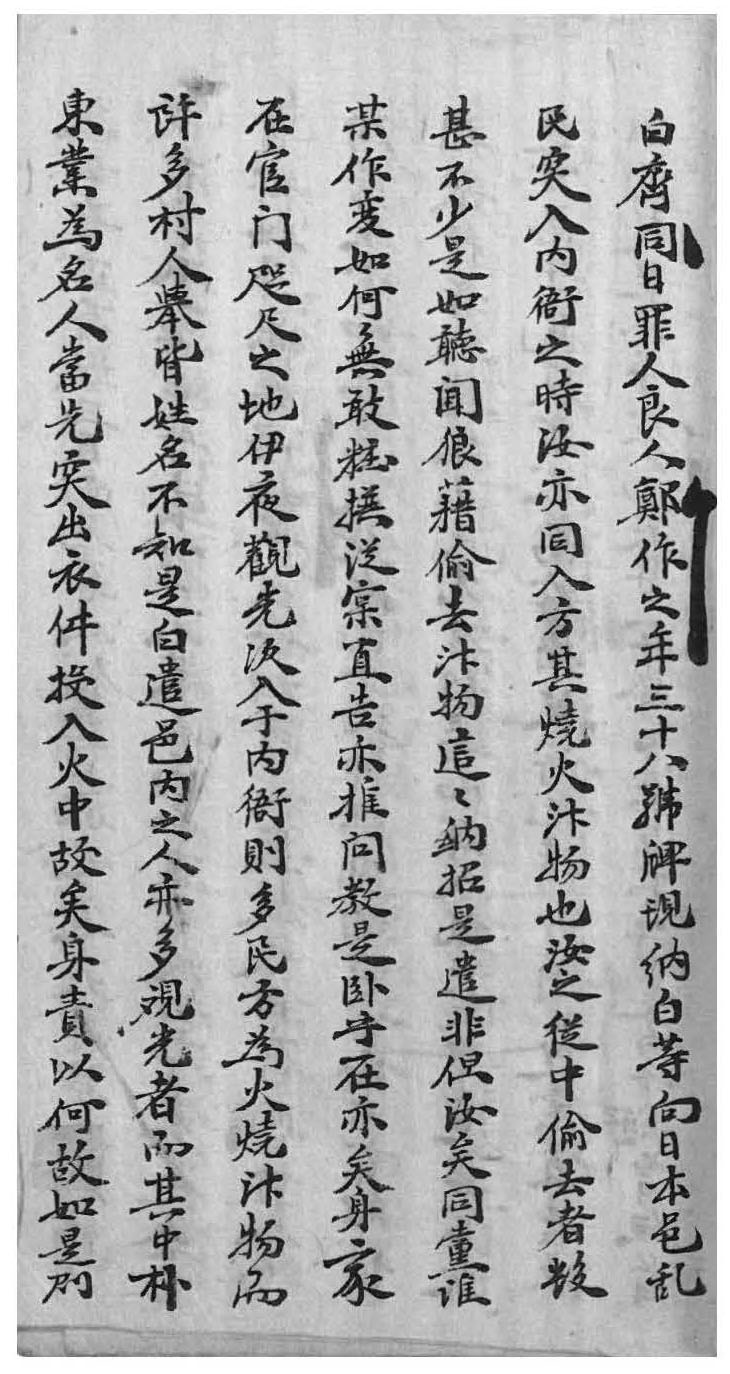 白齊同日罪人良人鄭作之年三十八號牌現納白等向日本邑乱
民突入内衙之時汝亦同入方其燒火汴物也汝之從中偷去者数
甚不少是如聽聞狼藉偷去汴物這〻納招是遣非但汝矣同黨誰
某作変如何無敢粧撰従宲直告亦推问教是卧乎在亦矣身家
在官门咫尺之地伊夜觀光次入于内衙則多民方為火燒汴物而
許多村人擧皆姓名不知是白遣邑内之人亦多覌光者而其中朴
東業為名人當先突出衣件投入火中故矣身責以何故如是則